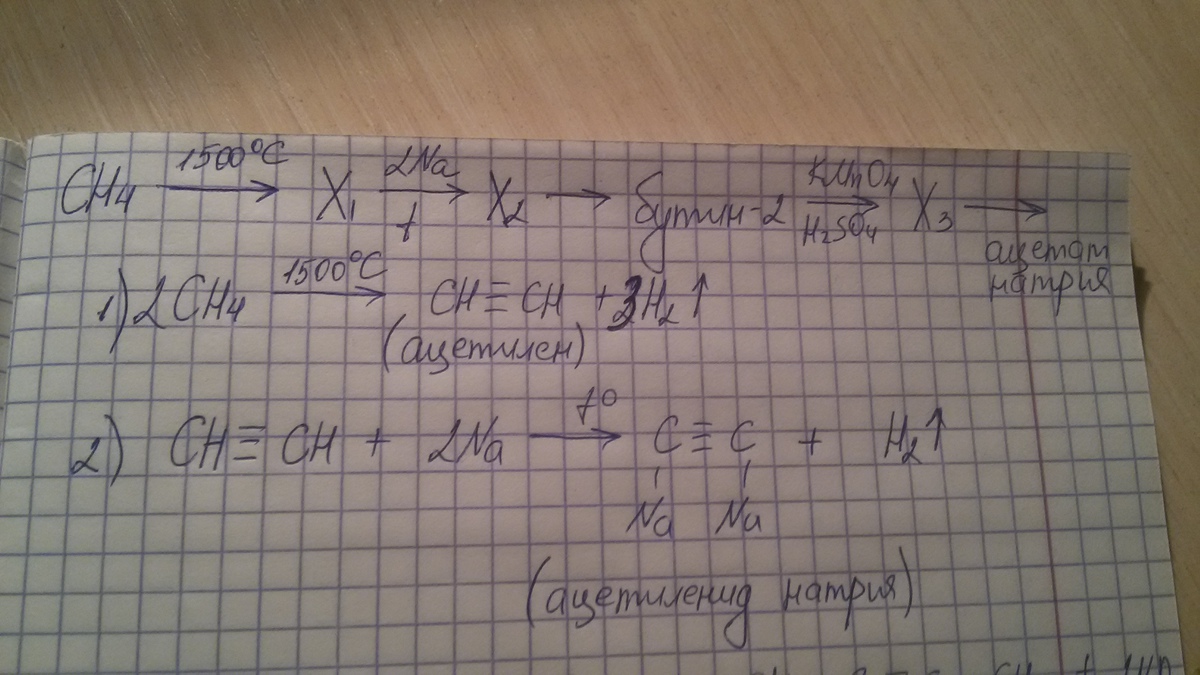 CH4 —1500°C→ X1 —2Na, t→ X2 → бутин-2 —KMnO4, H2SO4→ X3 → ацетат натрия
1) 2CH4 —1500°C→ CH≡CH + 3H2↑
(ацетилен)
2) CH≡CH + 2Na —t°→ C≡C + H2↑
Na Na
(ацетиленид натрия)